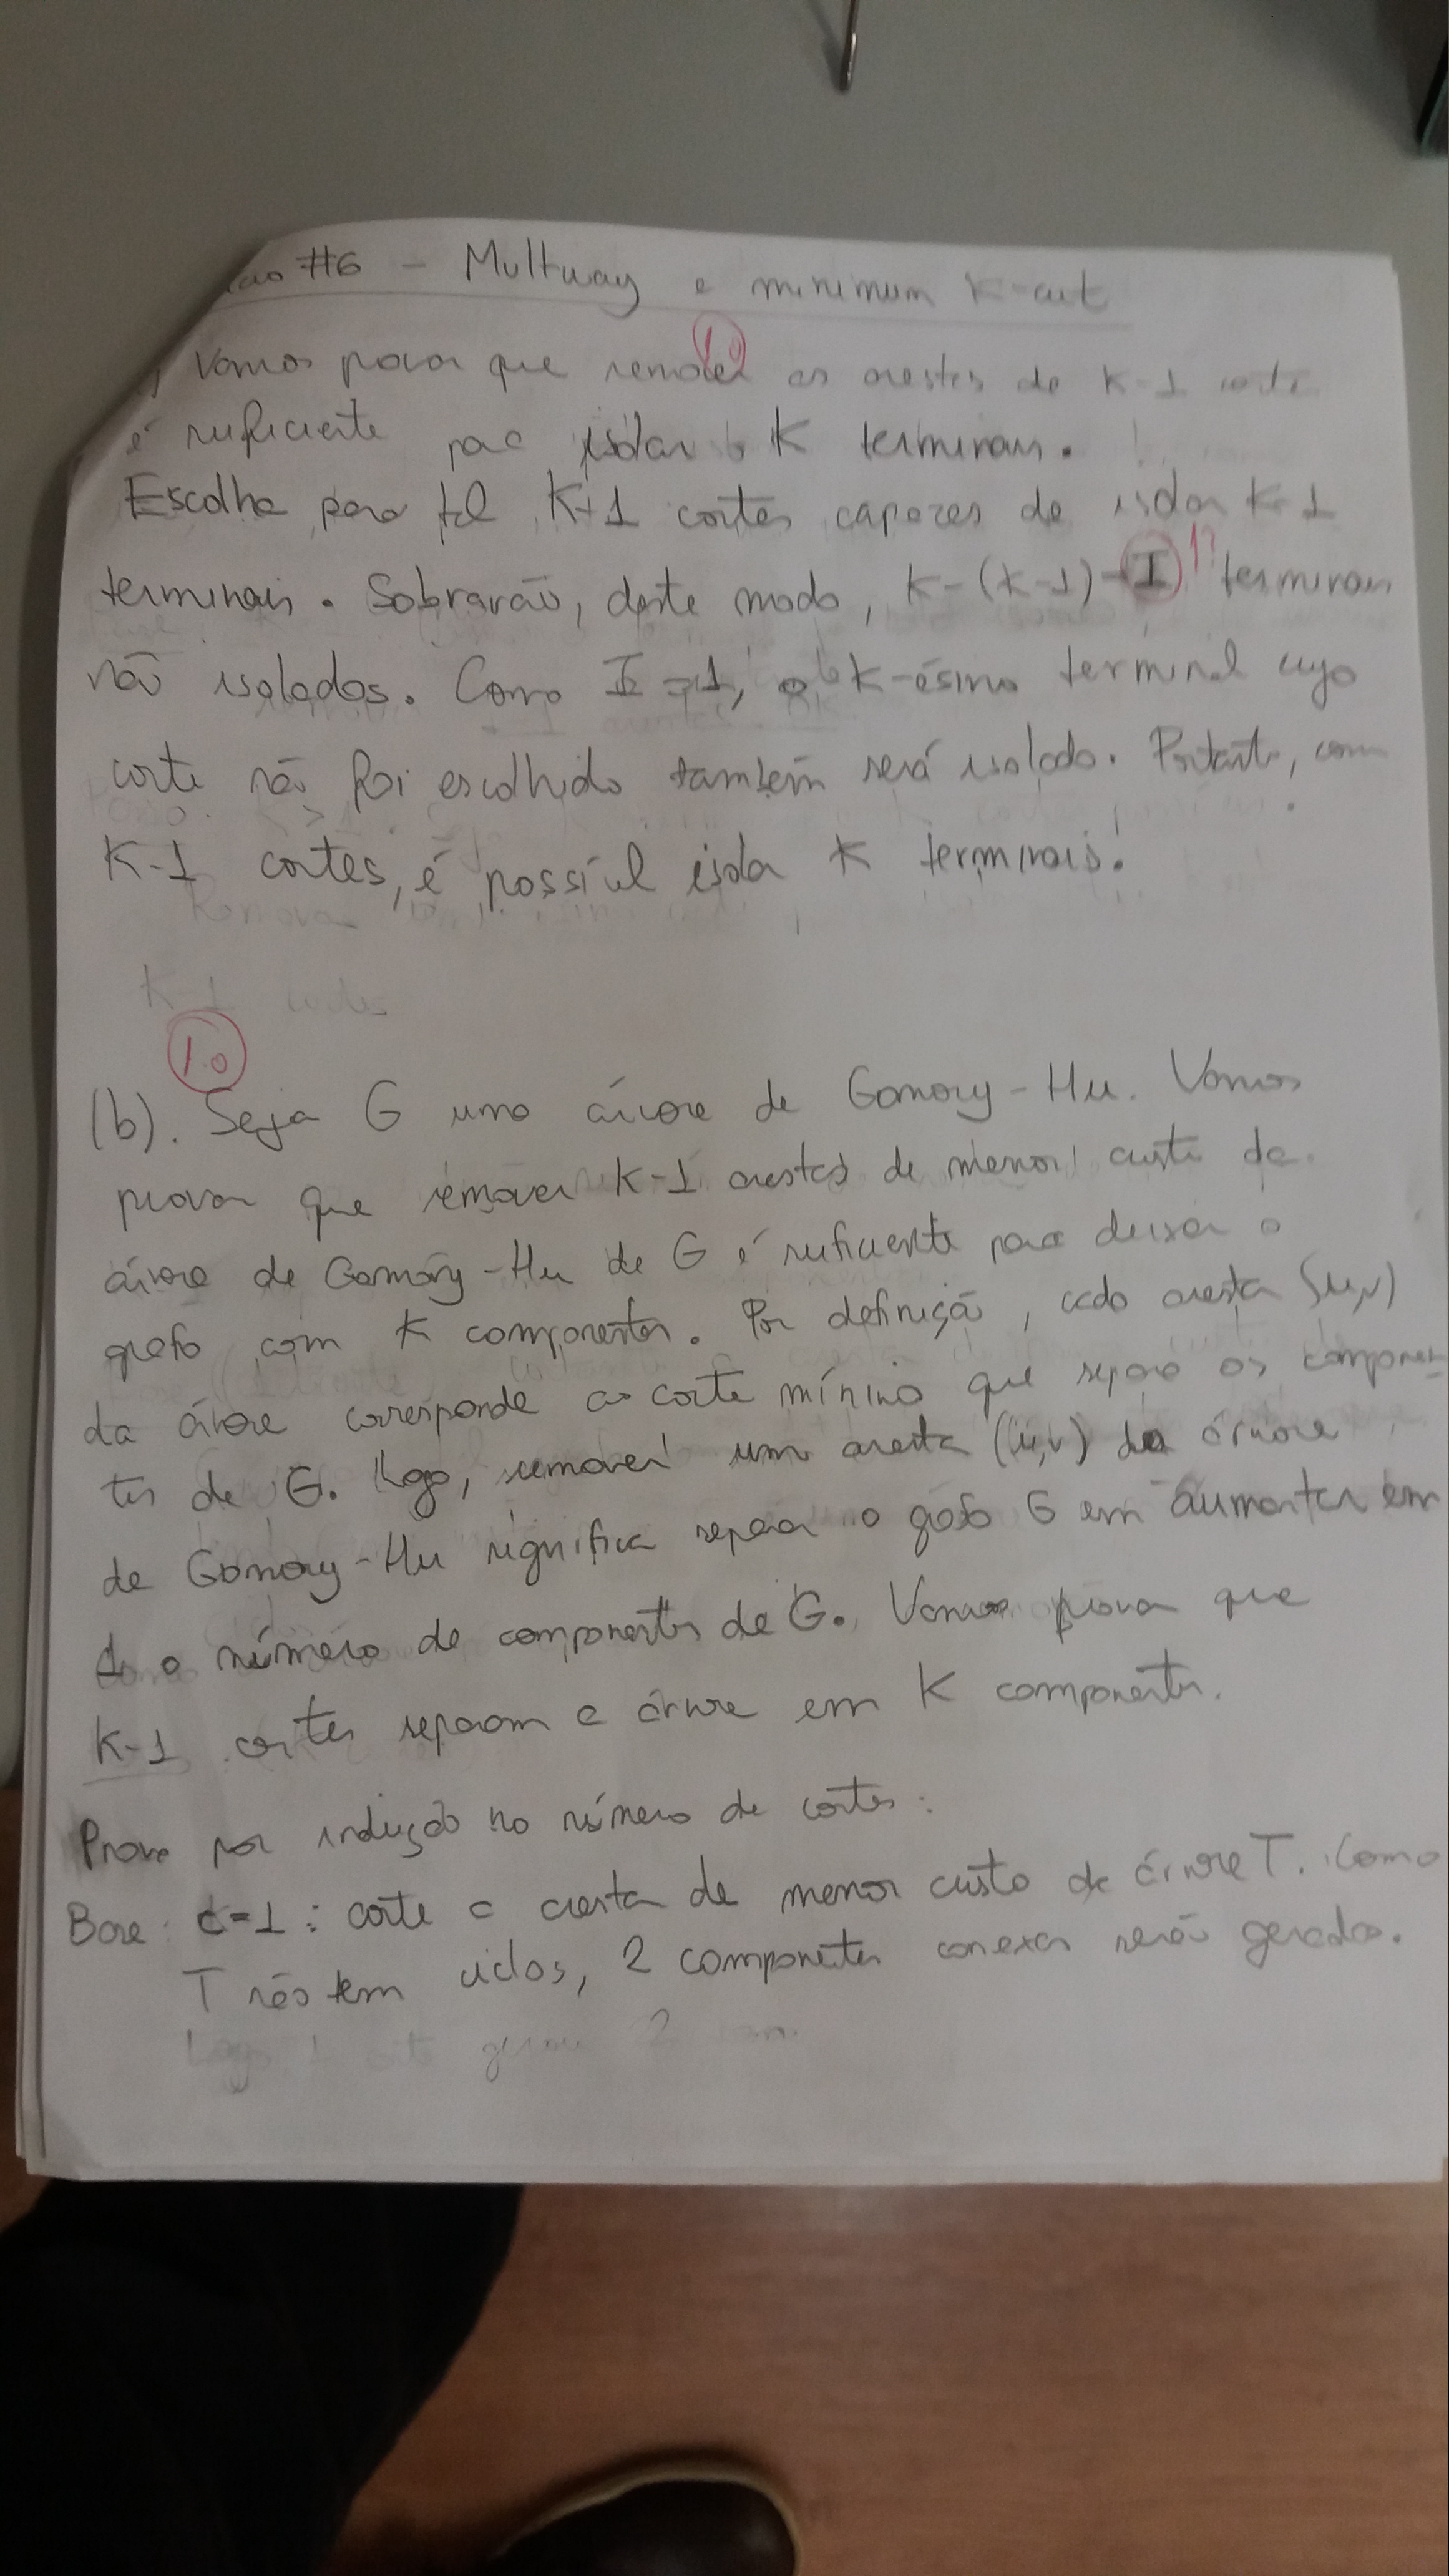 #6 - Multway e minimum K-cut
1.0
Vamos provar que remover as arestas de K-1 cortes
é suficiente para isolar K terminais.
Escolha para tal K-1 cortes capazes de isolar K-1
terminais. Sobrarão, deste modo, K-(K-1)-I !? terminais
não isolados. Como I=1, o K-ésimo terminal cujo
corte não foi escolhido também será isolado. Portanto, com
K-1 cortes, é possíul isolar K terminais!
K-1 cortes
1.0
(b). Seja G uma árvore de Gomory-Hu. Vamos
provar que remover K-1 arestas de menor custo da
árvore de Gomory-Hu de G é suficiente para deixar o
grafo com K componentes. Por definição, cada aresta (u,v)
da árvore corresponde ao corte mínimo que separa os componen-
tes de G. Logo, remover uma aresta (u,v) da árvore
de Gomory-Hu significa separar o grafo G em aumentar em
1 o número de componentes de G. Vamos provar que
K-1 cortes separam a árvore em K componentes.
Prova por indução no número de cortes:
Base: c=1: corte a aresta de menor custo da árvore T. Como
T não tem ciclos, 2 componentes conexas serão geradas.